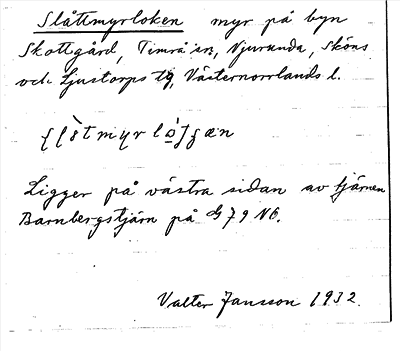 Slåttmyrloken myr på byn
Skottgård, Timrå sn, Njurunda, Sköns
och Ljustorps tg, Västernorrlands l.
Ligger på västra sidan av tjärnen
Barnbergstjärn på G 79 N6.
Valter Jansson 1932.